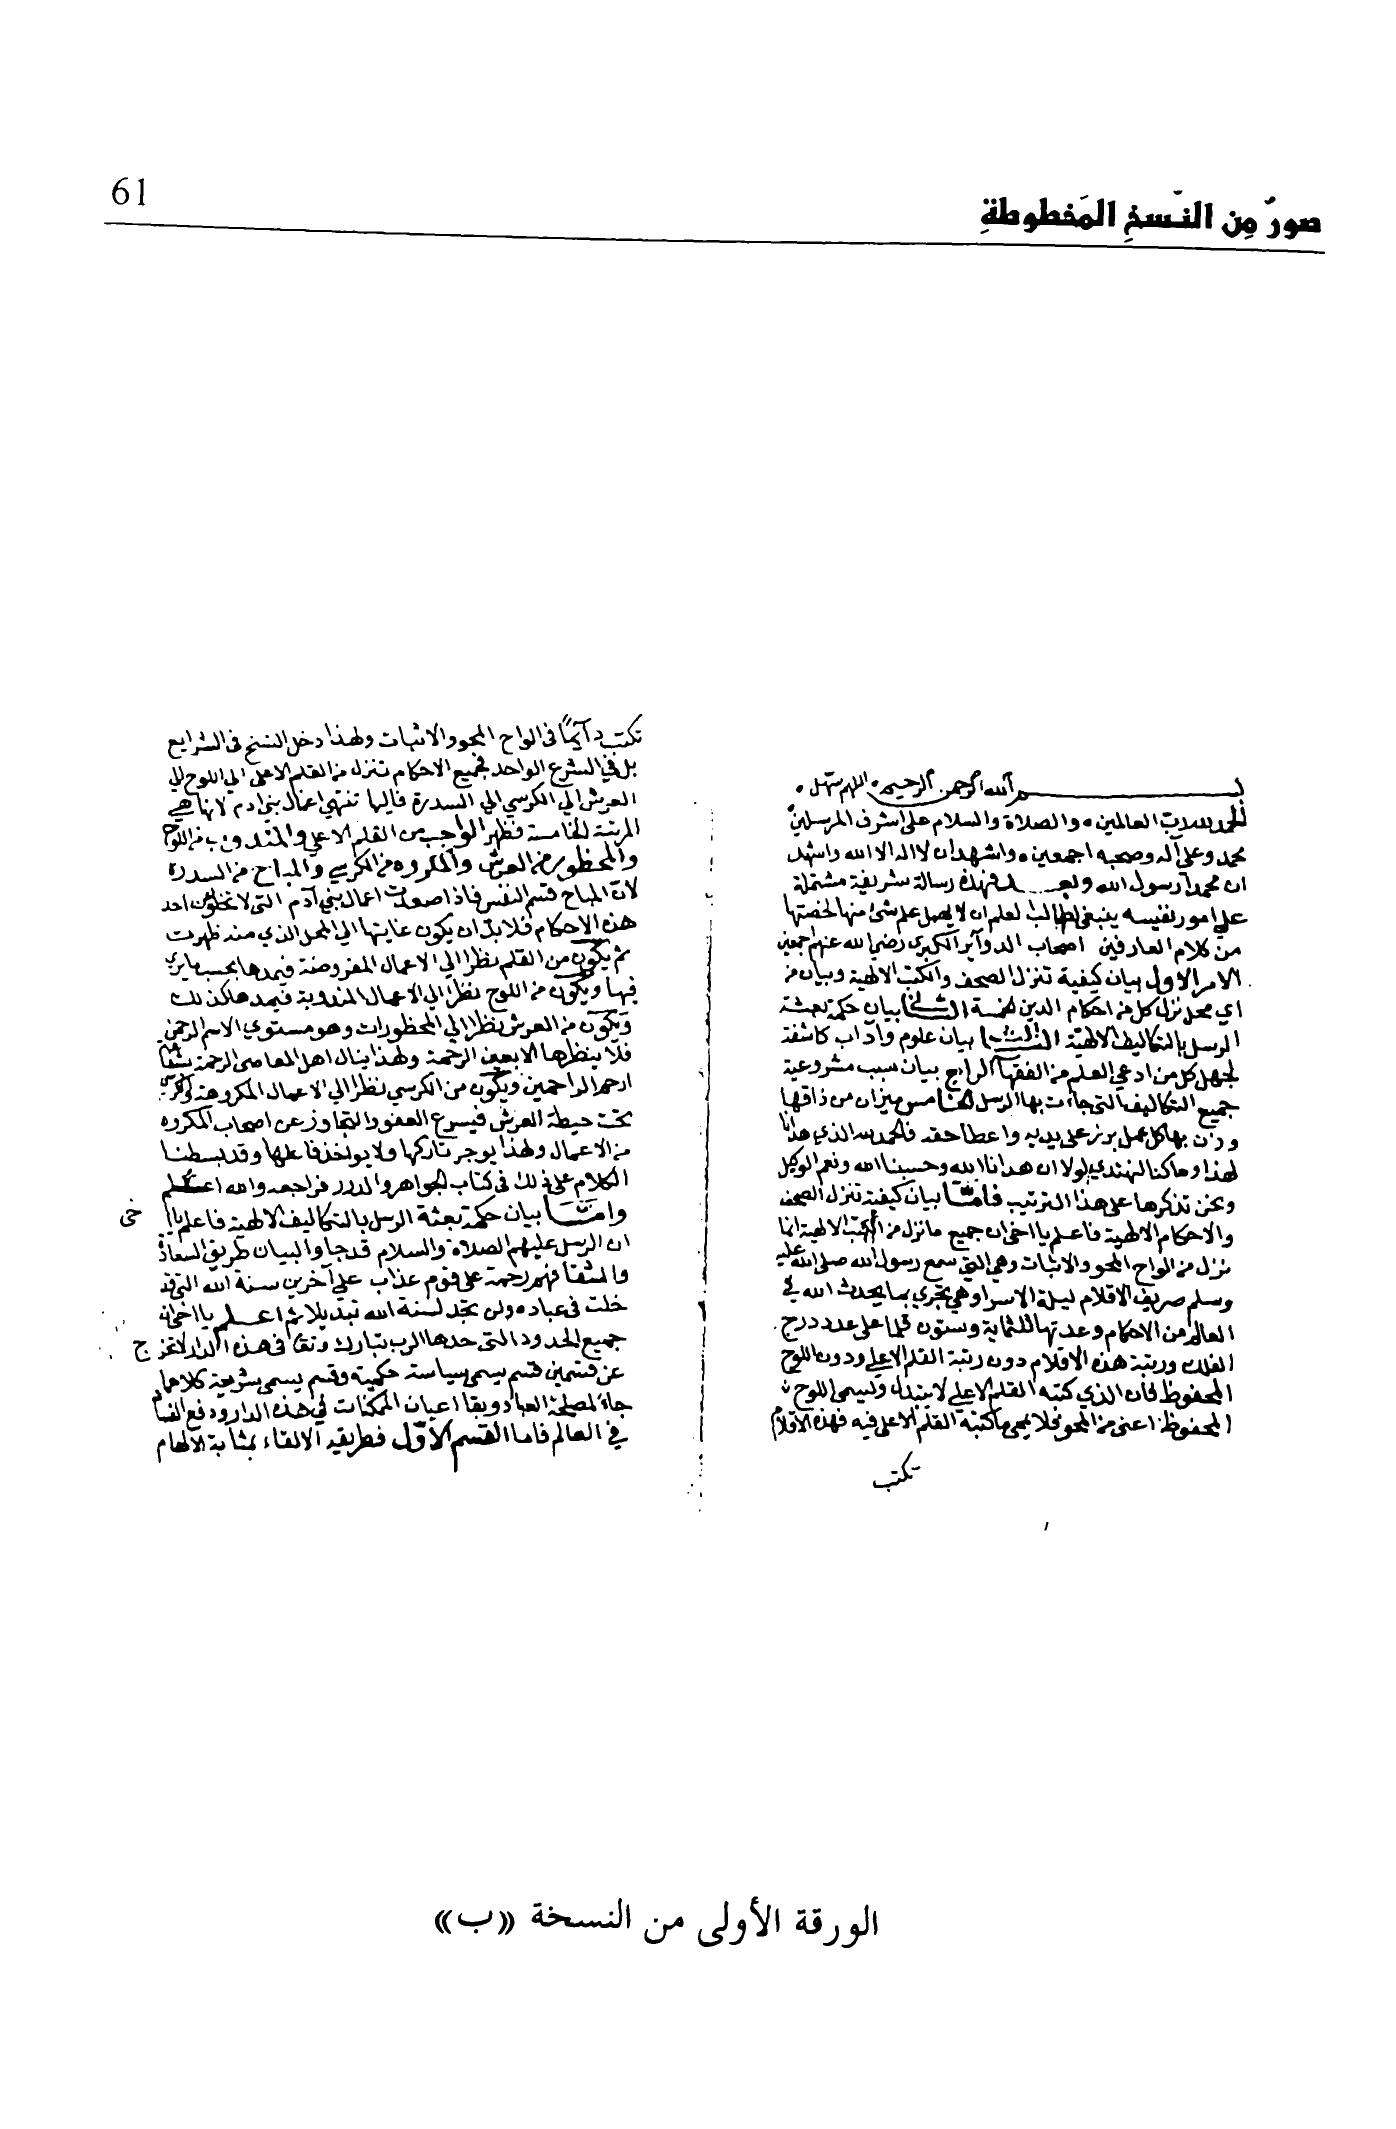 61
صورٌ مِن النّسخِ المَخطوطةِ
بسم الله الرحمن الرحيم اللهم سهل
الحمد لله رب العالمين والصلاة والسلام على اشرف المرسلين
محمد وعلى اله وصحبه اجمعين واشهد ان لا اله الا الله واشهد
ان محمدا رسول الله وبعد فهذه رسالة شريفة مشتملة
على امور نفيسه ينبغي لطالب العلم ان لا يهمل علم شئ منها لخصتها
من كلام العارفين اصحاب الدوآير الكبرى رضي الله عنهم اجمعين
الامر الاول بيان كيفية تنزل الصحف والكتب الالهية وبيان من
اي محل نزل كل من احكام الدين خمسة الثاني بيان حكمة بعثة
الرسل بالتكاليف الالهية الثالث بيان علوم واداب كاشفة
لجهل كل من ادعى العلم من الفقهآ الرابع بيان سبب مشروعية
جميع التكاليف التي جاءت بها الرسل الخامس ميزان من ذاقها
وزن بها كل عمل برز على يديه واعطا حقه فالحمد لله الذي هدانا
لهذا وما كنا لنهتدي لولا ان هدانا الله وحسبنا الله ونعم الوكيل
ونحن نذكرها على هذا الترتيب فامّا بيان كيفية تنزل الصحف
والاحكام الالهية فاعلم يا اخى ان جميع ما نزل من الكتب الالهية انما
نزل من الواح المحو والاثبات وهي التي سمع رسول الله صلى الله عليه
وسلم صريف الاقلام ليلة الاسرا وهي تجري بما يحدث الله في
العالم من الاحكام وعدتها ثلثماية وستون قلما على عدد درج
الفلك ورتبة هذه الاقلام دون رتبة القلم الاعلى ودون اللوح
المحفوظ فان الذي كتبه القلم الاعلى لا يتبدل وليسمى اللوح
المحفوظ اعني من المحو فلا يمحى ما كتبه القلم الاعلى فيه فهذه الاقلام
تكتب
تكتب دآيماً فى الواح المحو والاثبات ولهذا دخل النسخ فى الشرايع
بل في الشرع الواحد فجميع الاحكام تنزل من القلم الاعلى الي اللوح الي
العرش الي الكرسي الي السدرة فاليها تنتهي اعمال بني ادم لانها هي
المرتبة الخامسة فظهر الواجب من القلم الاعلى والمندوب من اللوح
والمحظور من العرش والمكروه من الكرسي والمباح من السدرة
لان المباح قسم النفس فاذا صعدت اعمال بني آدم التي لا تخلو من احد
هذه الاحكام فلا بد ان يكون غايتها الي المحل الذي منه ظهرت
ثم يكون من القلم نظرا الي الاعمال المفروضة فيمدها بحسب ما يرى
فيها ويكون من اللوح نظرا الي الاعمال المندوبة فيمدها كذلك
ويكون من العرش نظرا الي المحظورات وهو مستوي الاسم الرحمن
فلا ينظرها الا بعين الرحمة ولهذا ينال اهل المعاصي الرحمة
ارحم الراحمين ويكون من الكرسي نظرا الي الاعمال المكروهة والكرسي
تحت حيطة العرش فيسرع العفو والتجاوز عن اصحاب المكروه
من الاعمال ولهذا يوجر تاركها ولا يواخذ فاعلها وقد بسطنا
الكلام على ذلك فى كتاب الجواهر والدرر فراجعه والله اعلم
وامّا بيان حكمة بعثة الرسل بالتكاليف الالهية فاعلم يا اخى
ان الرسل عليهم الصلاة والسلام قد جاوا لبيان طريق السعادة
والشقا فهم رحمة على قوم عذاب على آخرين سنة الله التي قد
خلت فى عباده ولن تجد لسنة الله تبديلا ثم اعلم يا اخى ان
جميع الحدود التي حدها الرب تبارك وتعا فى هذه الدار لا تخرج
عن قسمين قسم يسمى سياسة حكمية وقسم يسمى شريعة كلاهما
جاءَ لمصلحة العباد وبقا اعيان الممكنات في هذه الدار ودفع الفساد
في العالم فاما القسم الاوّل فطريقه الالقاء بمثابة الالهام
الورقة الأولى من النسخة «ب»